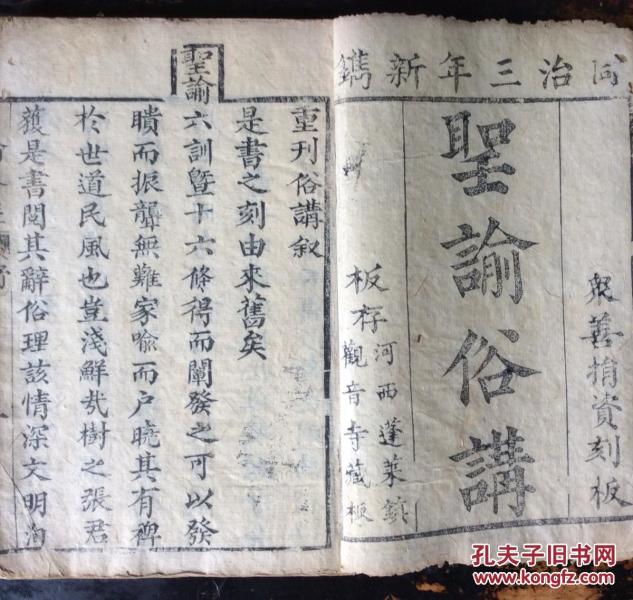 同治三年新鐫
眾善捐資刻板
聖諭俗講
板存河西蓬萊鎮
觀音寺藏板
聖諭
重刊俗講叙
是書之刻由來舊矣
六訓暨十六條得而闡發之可以發
聵而振聾無難家喻而户曉其有裨
於世道民風也豈淺鮮哉樹之張君
獲是書閱其辭俗理該情深文明洵
孔夫子旧书网
www.kongfz.com